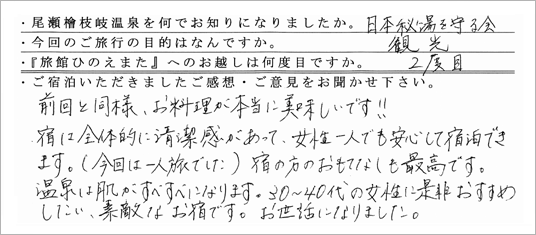 ・尾瀬檜枝岐温泉を何でお知りになりましたか。日本秘湯を守る会
・今回のご旅行の目的はなんですか。 観光
・『旅館ひのえまた』へのお越しは何度目ですか。 2度目
・ご宿泊いただきましたご感想・ご意見をお聞かせ下さい。
前回と同様、お料理が本当に美味しいです!!
宿は全体的に清潔感があって、女性一人でも安心して宿泊でき
ます。(今回は一人旅でした)宿の方のおもてなしも最高です。
温泉は肌がすべすべになります。30~40代の女性に是非おすすめ
したい、素敵なお宿です。お世話になりました。